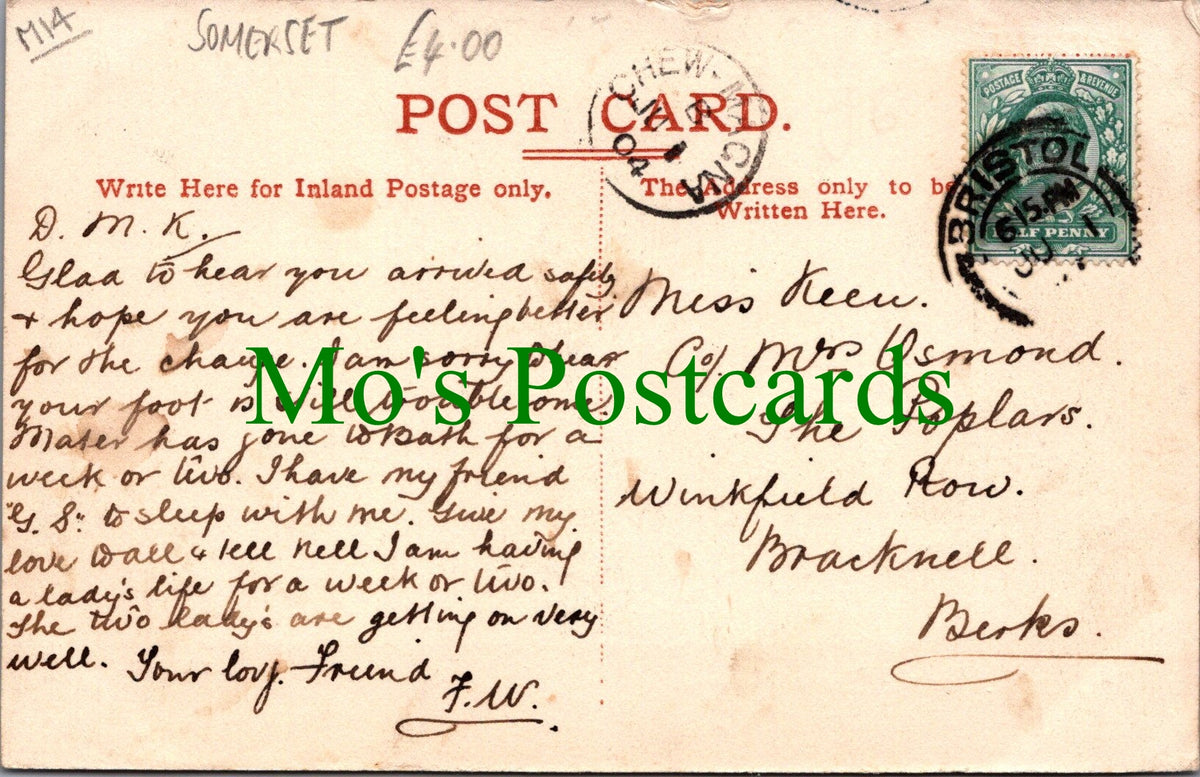 M14
SOMERSET
£4.00
POST CARD.
CHEW-MAGNA
B
JU 1
04
POSTAGE & REVENUE
HALF PENNY
BRISTOL
6 15.PM
JU 1
Write Here for Inland Postage only.
The Address only to be
Written Here.
D. M. K.
Glad to hear you arrived safely
& hope you are feeling better
for the change. I am sorry to hear
your foot is still troublesome.
Mater has gone to Bath for a
week or two. I have my friend
"G. S." to sleep with me. Give my
love to all & tell Nell I am having
a lady's life for a week or two.
The two lady's are getting on very
well. Your lovg. Friend
F. W.
Miss Keen.
C/o. Mrs Osmond.
The Poplars.
Winkfield Row.
Bracknell.
Berks.
Mo's Postcards